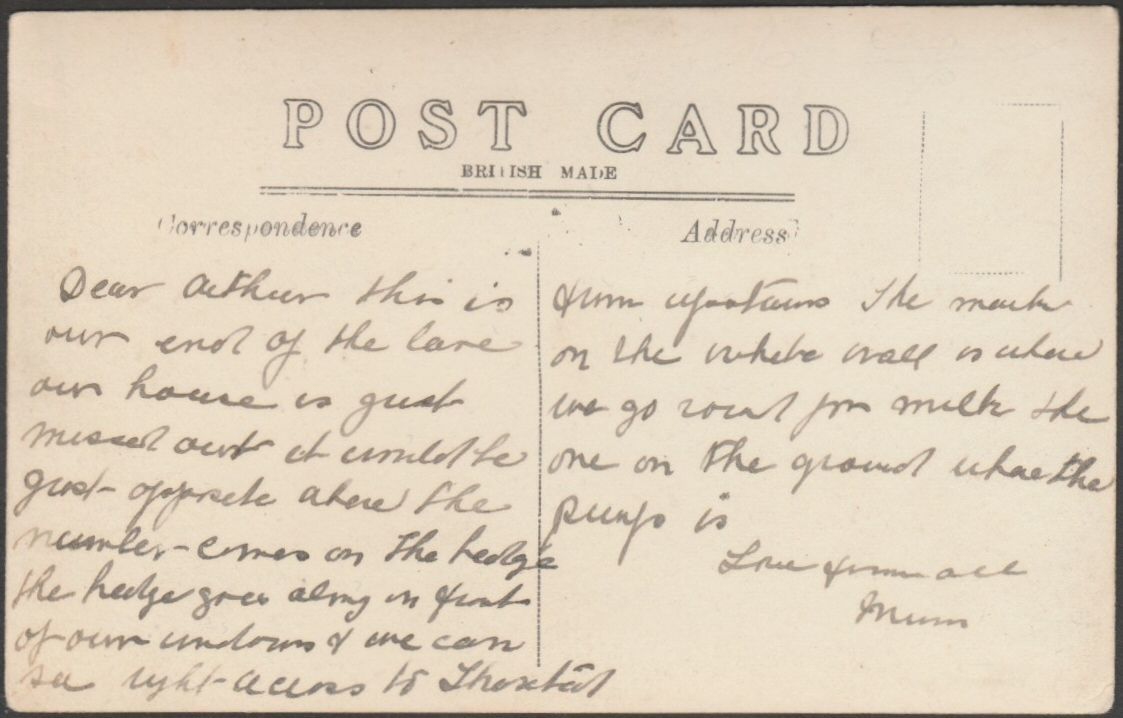 POST CARD
BRITISH MADE
Correspondence
Address
Dear Arthur this is
our end of the lane
our house is just
missed out it would be
just opposite where the
number comes on the hedge
the hedge goes along in front
of our windows & we can
see right across to Thaxted
from upstairs The mark
on the white wall is where
we go round for milk the
one on the ground where the
pump is
Love from all
Mum